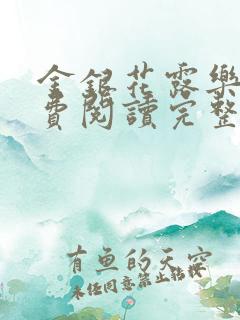 金銀花露樂
費閱讀完整
有魚的天空
未經同意禁止轉載